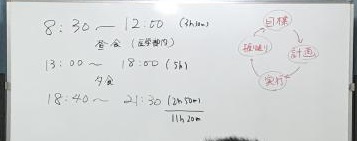 8:30〜12:00 (3h30m)
昼食 (医学部内)
13:00〜18:00 (5h)
夕食
18:40〜21:30 (2h50m)
11h20m
目標
計画
実行
振返り